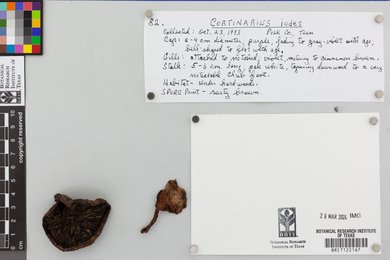 8a. CORTINARIUS iodes
Collected: Oct. 23, 1983 Polk Co., Texas
Cap: 2-4 cm diameter, purple fading to gray-violet with age,
bell-shaped to flat with age.
Gills: attached to notched, violet, maturing to cinnamon brown.
Stalk: 5-6 cm long, pale white, tapering downward to a very
noticeable club foot.
Habitat - Under hardwoods.
SPORE Print - rusty brown.
BOTANICAL RESEARCH
INSTITUTE OF TEXAS
copyright reserved
cm
0
5
10
BRIT
BOTANICAL RESEARCH
INSTITUTE OF TEXAS
28 MAR 2024 IMG
BOTANICAL RESEARCH INSTITUTE
OF TEXAS
BRIT122167